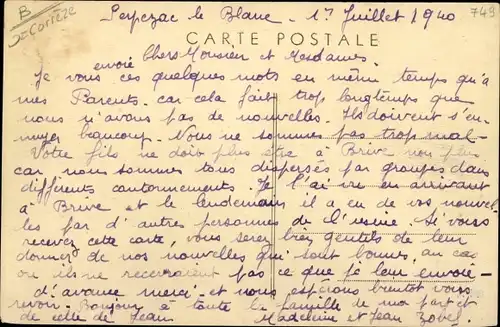 B
Corrèze
749
Perpezac le Blanc - 17 Juillet 1940
CARTE POSTALE
Chers Monsieur et Mesdames.
Je vous envoie ces quelques mots en même temps qu'à
mes Parents. car cela fait trop longtemps que
nous n'avons pas de nouvelles. Ils doivent s'en-
nuyer beaucoup. Nous ne sommes pas trop mal-
Votre fils ne doit plus être à Brive non plus
car nous sommes tous dispersés par groupes dans
différents cantonnements. Je l'ai vu en arrivant
à Brive et le lendemain il a eu de vos nouvel
les par d'autres personnes de l'usine. Si vous
recevez cette carte, vous serez bien gentils de leur
donner de nos nouvelles qui sont bonnes, au cas
où ils ne recevraient pas ce que je leur envoie-
d'avance merci. et nous espérons bientôt vous
revoir. Bonjour à toute la famille de ma part et
de celle de Jean Madeleine et Jean